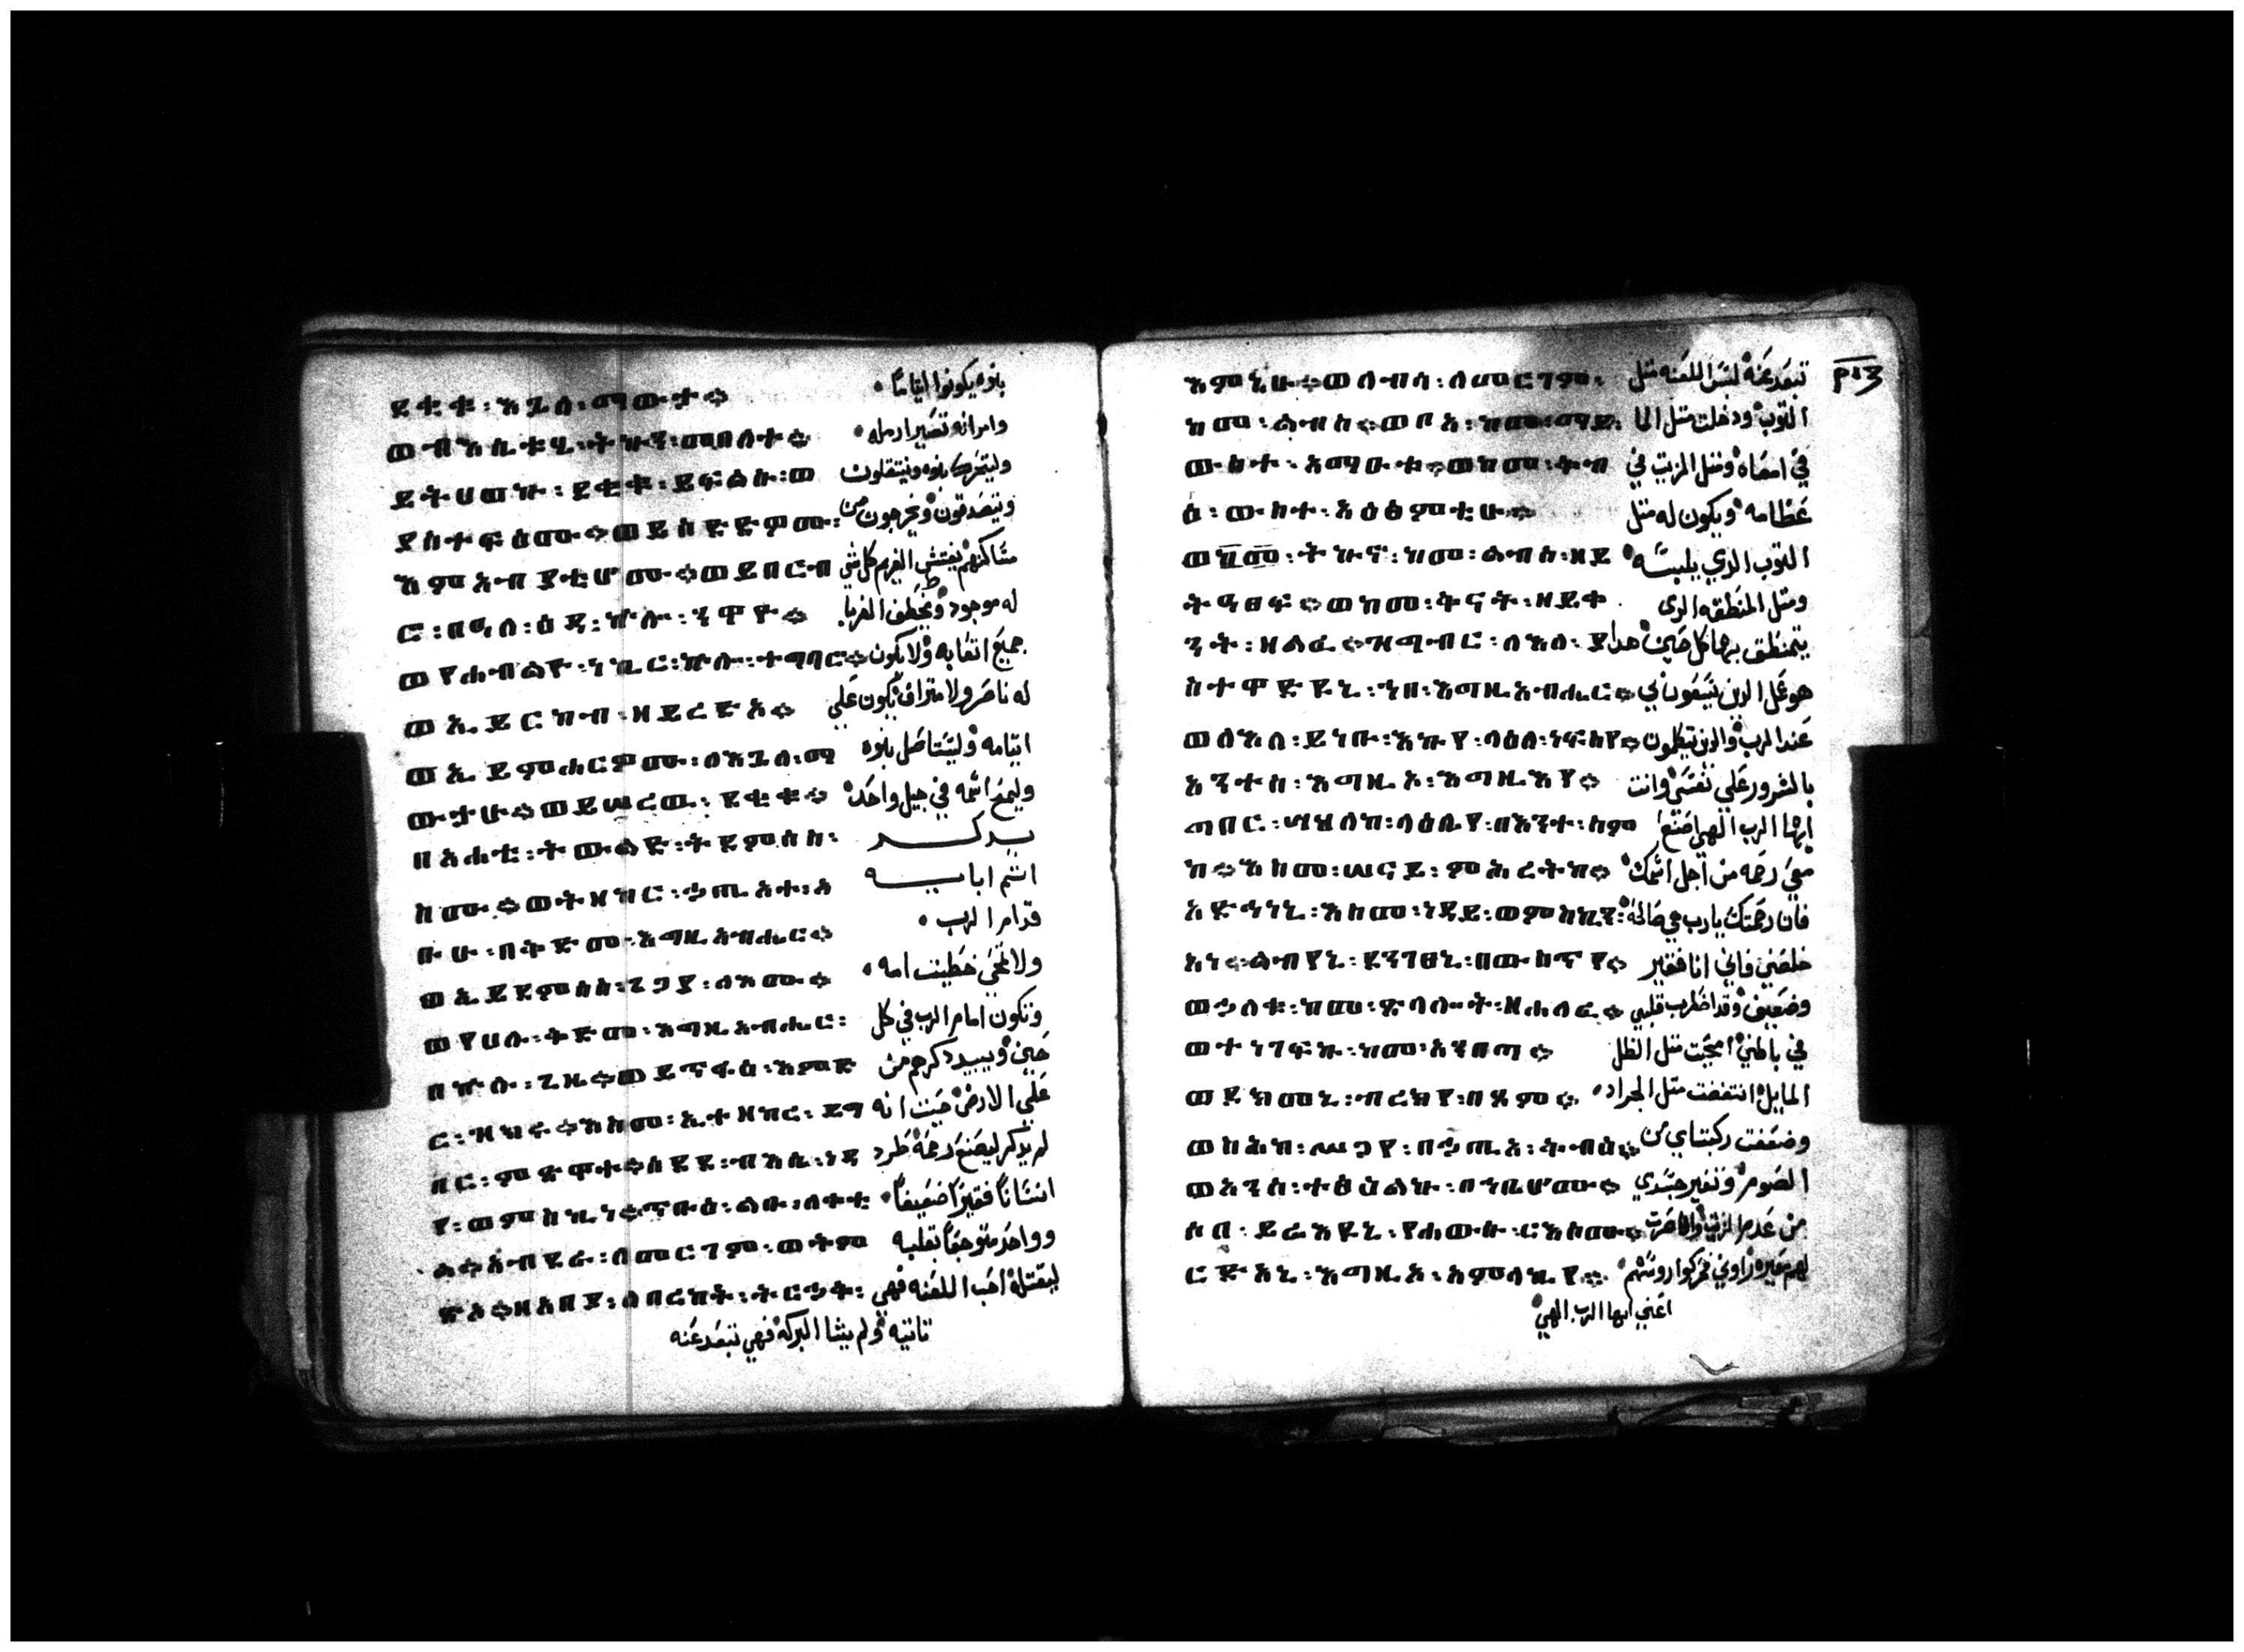 ደቂቁ ፡ እጓለ ፡ ማውታ ። بنوه يكونوا ايتاماً
ወብእሲቱሂ ፡ ትኩን ፡ መበለተ ። وامراته تصير ارمله
ይትሀወኩ ፡ ደቂቁ ፡ ይፍልሱ ፡ ወ وليتحركا بنوه وينتقلون
ያስተፍዕሙ ። ወይስድድዎሙ ፡ ويتصدقون ويخرجون من
እምአብያቲሆሙ ። ወይበርብ مساكنهم يفتش الغريم كل شي
ር ፡ በዓለ ፡ ዕዳ ፡ ኵሎ ፡ ንዋዮ ። له موجود ويخطف الغربا
ወየሐብልዮ ፡ ነኪር ፡ ኵሎ ፡ ተግባሮ ። جميع اتعابه ولا يكون
ወኢይርከብ ፡ ዘይረድኦ ። له ناصر ولا متراف يكون علي
ወኢይምሐርዎሙ ፡ ለእጓለ ፡ ማ ايتامه وليستاصل بنوه
ውታሁ ። ወይሠረዉ ፡ ደቂቁ ። وليمح اسمه في جيل واحد
በአሐቲ ፡ ትውልድ ፡ ትደምሰስ ፡ يدكر
ስሙ ። ወትዘከር ፡ ኃጢአተ ፡ አ اثم ابايه
ቡሁ ፡ በቅድመ ፡ እግዚአብሔር ። قدام الرب
ወኢይደምሰስ ፡ ጌጋያ ፡ ለእሙ ። ولا تمحي خطيت امه
ወየሀሉ ፡ ቅድመ ፡ እግዚአብሔር ፡ وتكون امام الرب في كل
በኵሉ ፡ ጊዜ ። ወይጥፋእ ፡ እምድ حين ويبيد دكرهم من
ር ፡ ዝክሩ ። እስመ ፡ ኢተዘከረ ፡ ይግ علي الارض حيت انه
በር ፡ ምጽዋተ ። ሰደደ ፡ ብእሴ ፡ ነዳ لم يدكر ليصنع رحمة طرد
የ ፡ ወምስኪነ ። ጥቡዕ ፡ ልቡ ፡ ለቀቲ انساناً فقيراً ضعيفاً
ል ። አብደረ ፡ ለመርገም ፡ ወትም وواحد متوجعاً بقلبه
ጽኦ ። ዘአበያ ፡ ለበረከት ፡ ትርኃቅ ፡ ليقتله احب اللعنه فهي
تاتيه ولم يشا البركه فهي تبعد عنه
እምኔሁ ። ወለብሳ ፡ ለመርገም ፡ تبعد عنه لبس اللعنه متل
ከመ ፡ ልብስ ። ወቦአ ፡ ከመ ፡ ማይ ፡ التوب ودخلت متل الما
ውስተ ፡ አማዑቱ ። ወከመ ፡ ቅብ في امعاه ومتل الزيت في
ዕ ፡ ውስተ ፡ አዕፅምቲሁ ። عظامه ويكون له متل
ወከመ ፡ ትኩኖ ፡ ከመ ፡ ልብስ ፡ ዘይ التوب الدي يلبسه
ትዓፀፍ ። ወከመ ፡ ቅናት ፡ ዘይቀ ومتل المنطقه الدى
ንት ፡ ዘልፈ ። ዝግብር ፡ ለእለ ፡ ያ يتمنطق بها كل حين هدا
ስተዋድዩኒ ፡ ኀበ ፡ እግዚአብሔር ። هو عمل الدين يسعون بي
ወለእለ ፡ ይነቡ ፡ እኩየ ፡ ላዕለ ፡ ነፍስየ ። عند الرب والدين يتكلمون
አንተሰ ፡ እግዚኦ ፡ እግዚእየ ። بالشرور علي نفسي وانت
ግበር ፡ ሣህለከ ፡ ላዕሌየ ፡ በእንተ ፡ ስም ايها الرب الهي اصنع
ከ ። እስመ ፡ ሠናይ ፡ ምሕረትከ ። معي رحمه من اجل اسمك
አድኅነኒ ፡ እስመ ፡ ነዳይ ፡ ወምስኪን ፡ فان رحمتك يارب هي صالحة
አነ ። ልብየኒ ፡ ደንገፀኒ ፡ በውስጥየ ። خلصني فاني انا فقير
ወኃለቁ ፡ ከመ ፡ ጽላሎት ፡ ዘኀለፈ ። وضعيف وقد اضطرب قلبي
ወተነገፍኩ ፡ ከመ ፡ አንበጣ ። في باطني امحيت متل الظل
ወደክመኒ ፡ ብረክየ ፡ በጾም ። المايل انتفضت متل الجراد
ወስሕከ ፡ ሥጋየ ፡ በኃጢአ ፡ ቅብዕ ። وضعفت ركبتاي من
ወአንሰ ፡ ተፅዕልኩ ፡ በኀቤሆሙ ። الصوم وتغير جسدي
ሶበ ፡ ይሬእዩኒ ፡ የሐውሱ ፡ ርእሶሙ ። من عدم الزيت وانا صرت
ርድአኒ ፡ እግዚኦ ፡ አምላኪየ ። لهم معيره راوني فحركوا روسهم
اعني ايها الرب الهي